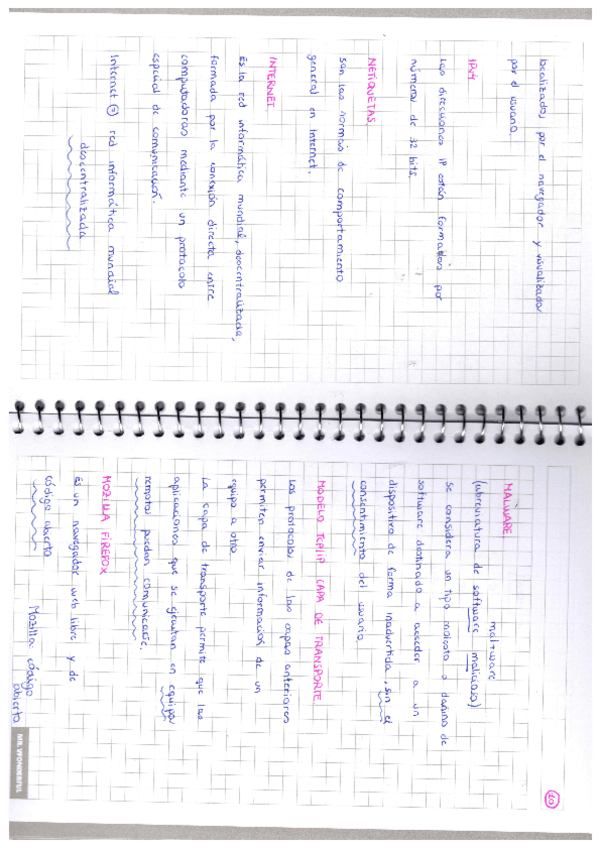 localizados por el navegador y visualizados
por el usuario.
IPv4
Las direcciones IP están formadas por
números de 32 bits.
NETIQUETAS.
Son las normas de comportamiento
general en Internet.
INTERNET.
Es la red informática mundial, descentralizada,
formada por la conexión directa entre
computadoras mediante un protocolo
especial de comunicación.
Internet = red informática mundial
descentralizada
20
MALWARE.
mal+ware
(abreviatura de software malicioso)
Se considera un tipo molesto o dañino de
software destinado a acceder a un
dispositivo de forma inadvertida, sin el
consentimiento del usuario.
MODELO TCP/IP CAPA DE TRANSPORTE
Los protocolos de las capas anteriores
permiten enviar información de un
equipo a otro.
La capa de transporte permite que las
aplicaciones que se ejecutan en equipos
remotos puedan comunicarse.
MOZILLA FIREFOX
Es un navegador web libre y de
código abierto
Mozilla: código
abierto
MR. WONDERFUL